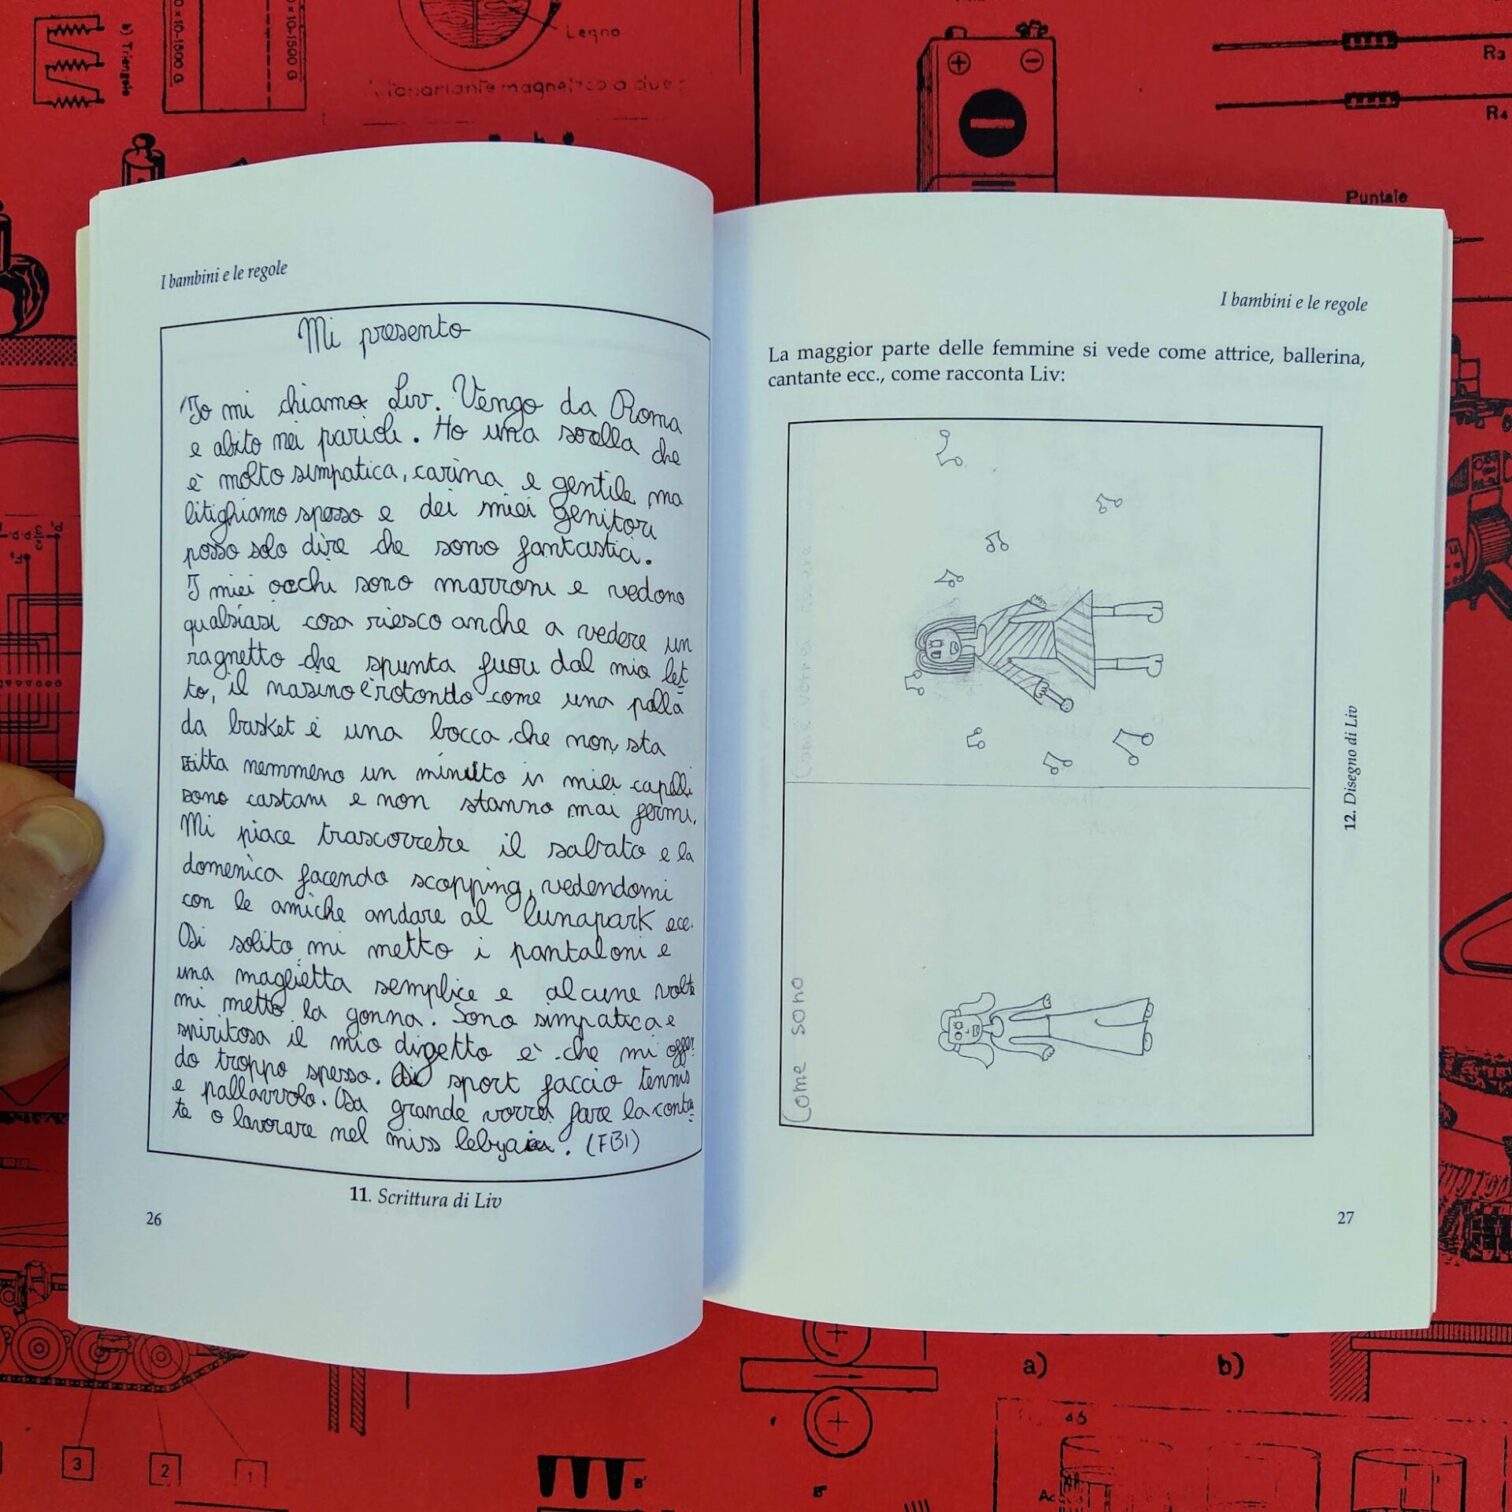 b) Triangolo
0×10-1500 G
0×10-1500 G
Legno
R3
R4
Puntale
I bambini e le regole
Mi presento
Io mi chiamo Liv. Vengo da Roma
e abito nei parioli. Ho una sorella che
è molto simpatica, carina e gentile, ma
litighiamo spesso e dei miei genitori
posso solo dire che sono fantastici.
I miei occhi sono marroni e vedono
qualsiasi cosa riesco anche a vedere un
ragnetto che spunta fuori dal mio let
to, il nasino è rotondo come una palla
da basket è una bocca che non sta
zitta nemmeno un minuto i miei capelli
sono castani e non stanno mai fermi.
Mi piace trascorrere il sabato e la
domenica facendo scopping, vedendomi
con le amiche andare al lunapark ecc.
Di solito mi metto i pantaloni e
una maglietta semplice e alcune volte
mi metto la gonna. Sono simpatica e
spiritosa il mio difetto è che mi offen
do troppo spesso. Di sport faccio tennis
e pallavvolo. Da grande vorrei fare la canta
te o lavorare nel miss (FBI)
11. Scrittura di Liv
26
I bambini e le regole
La maggior parte delle femmine si vede come attrice, ballerina,
cantante ecc., come racconta Liv:
Come vorrei
Come sono
12. Disegno di Liv
27
a)
b)
3
2
1
B'